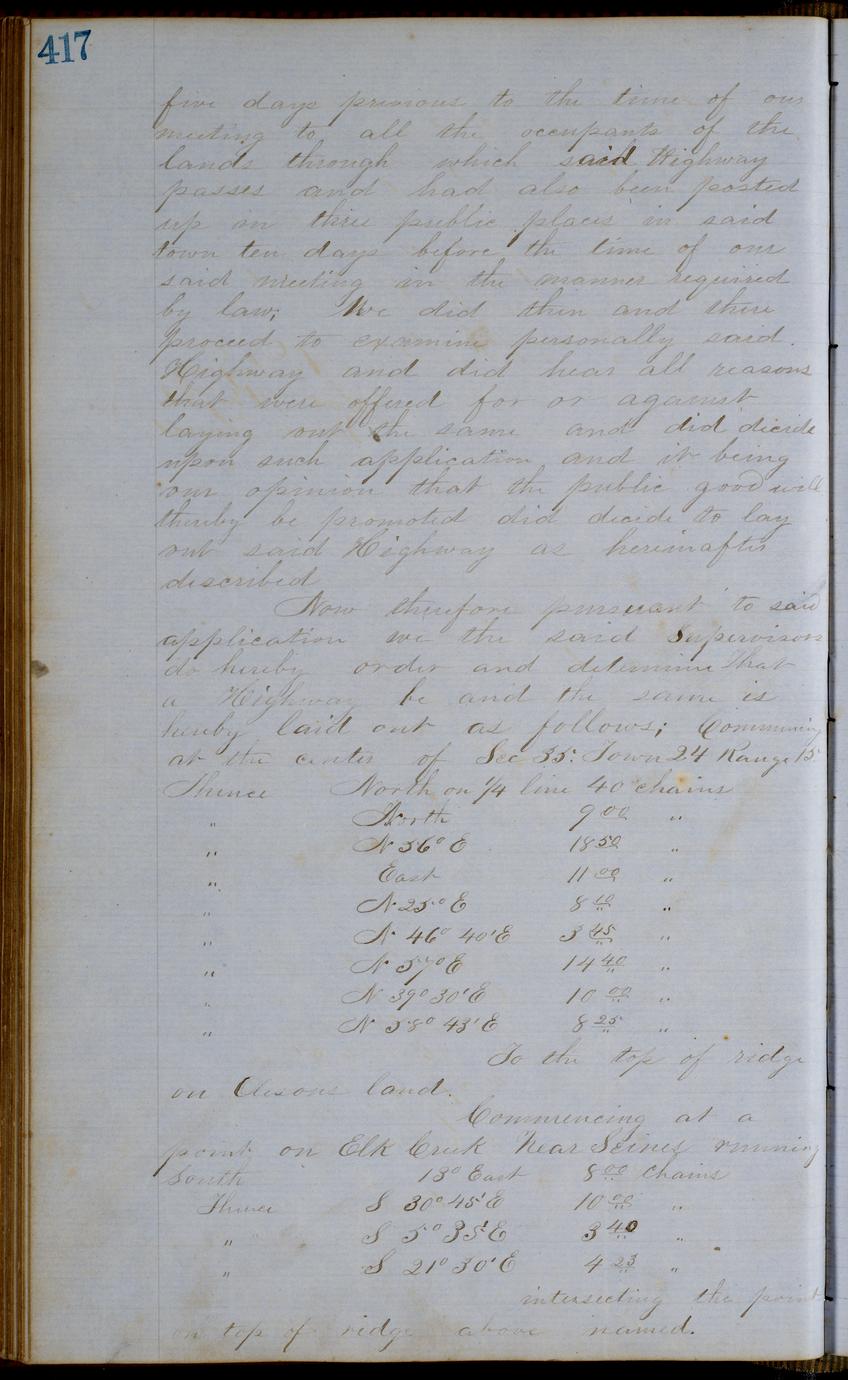 417
five days previous to the time of our
meeting to all the occupants of the
lands through which said Highway
passes and had also been posted
up in three public places in said
town ten days before the time of our
said meeting in the manner required
by law; We did then and there
proceed to examine personally said
Highway and did hear all reasons
that were offered for or against
laying out the same and did decide
upon such application and it being
our opinion that the public good will
thereby be promoted did decide to lay
out said Highway as hereinafter
described
Now therefore pursuant to said
application we the said Supervisors
do hereby order and determine that
a Highway be and the same is
hereby laid out as follows; Commencing
at the center of Sec 35. Town 24 Range 15
Thence North on 1/4 line 40 chains
" North 9 00 "
" N 36° E 18 50 "
" East 11 00 "
" N 25° E 8 10 "
" N 46° 40' E 3 45 "
" N 57° E 14 40 "
" N 39° 30' E 10 00 "
" N 58° 43' E 8 25 "
To the top of ridge
on land.
Commencing at a
point on Elk Creek Near running
South 13° East 8 00 chains
Thence S 30° 45' E 10 00 "
" S 5° 35' E 3 40 "
" S 21° 30' E 4 23 "
intersecting the point
on top of ridge above named.